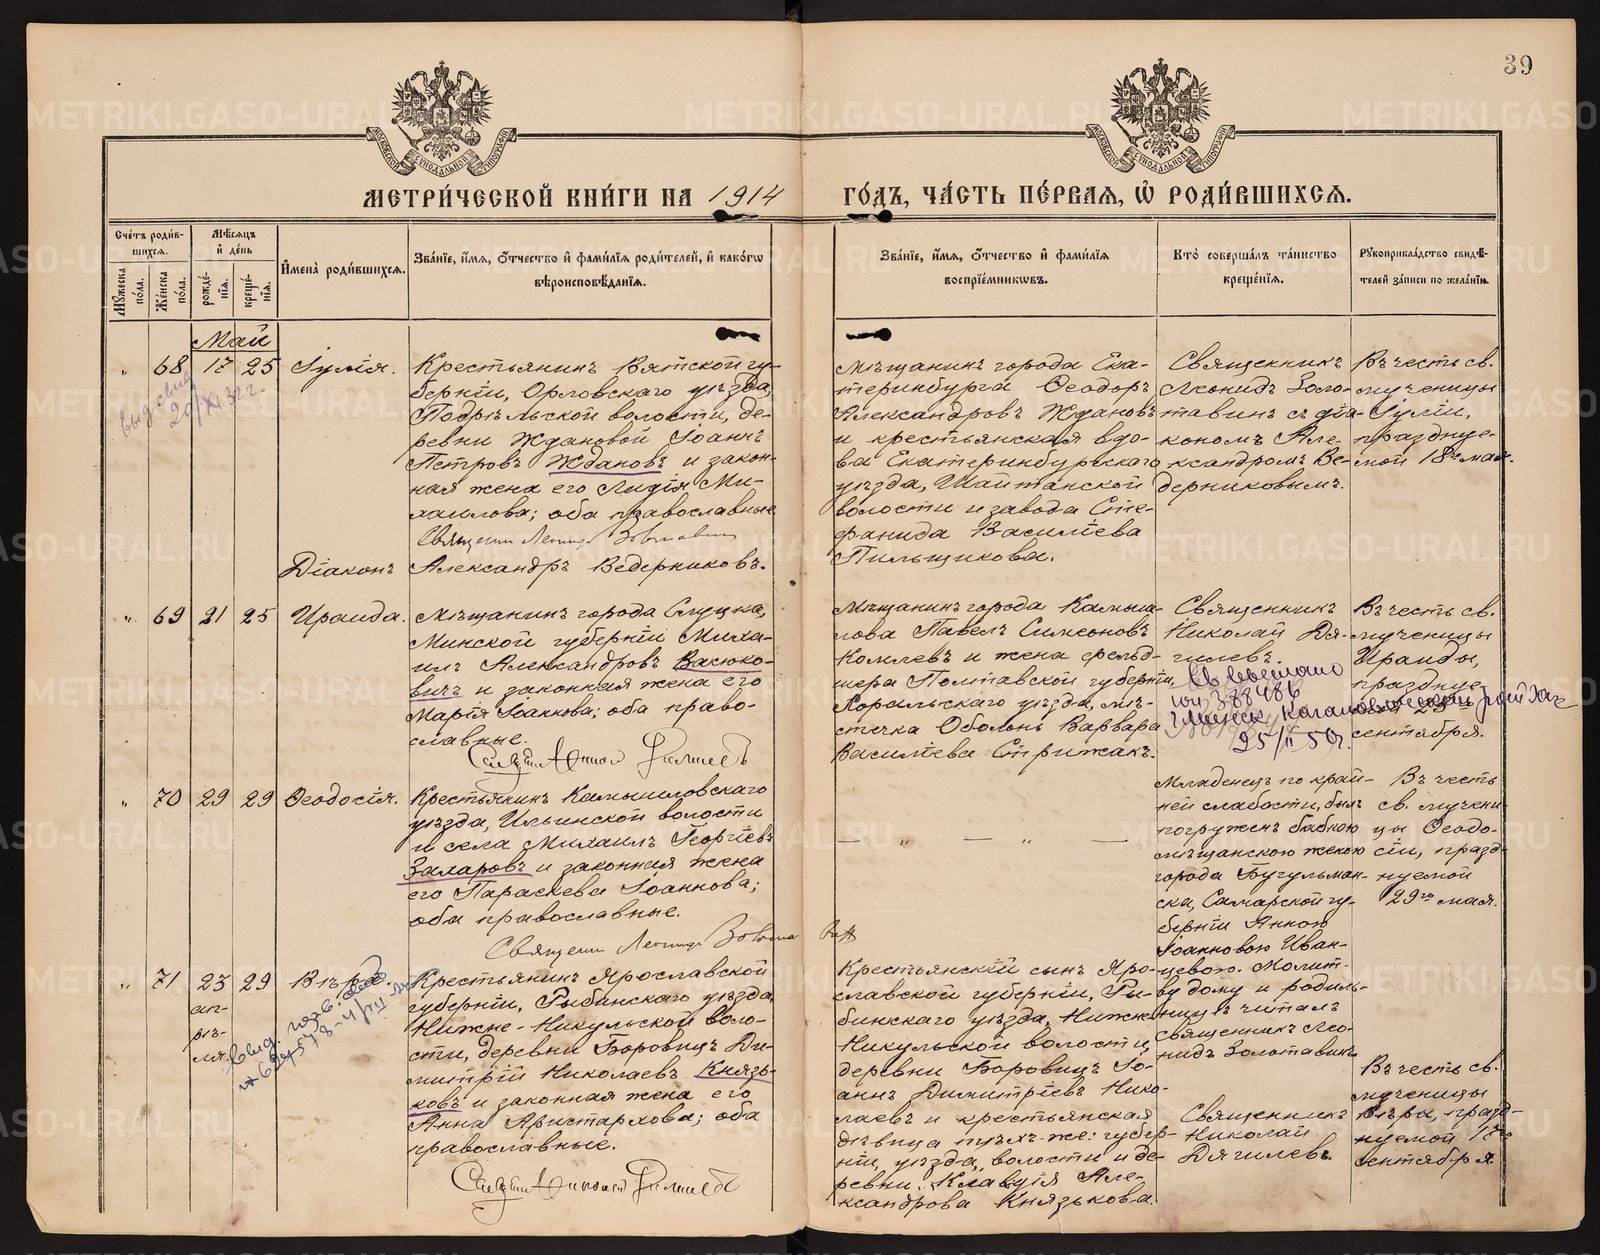 39
МЕТРИ́ЧЕСКОЙ КНИ́ГИ НА 1914 ГО́ДЪ, ЧА́СТЬ ПЕ́РВАѦ, Ѡ҆ РОДИ́ВШИХСѦ.
Сче́тъ роди́вшихсѧ.
Мѹ́жеска по́ла.
Же́нска по́ла.
Мѣ́сѧцъ и҆ де́нь
рожде́нїѧ.
креще́нїѧ.
И҆мена̀ роди́вшихсѧ.
Зва́нїе, и҆́мѧ, ѻ҆́тчество и҆ фами́лїѧ роди́телей, и҆ како́гѡ вѣроисповѣ́данїѧ.
Зва́нїе, и҆́мѧ, ѻ҆́тчество и҆ фами́лїѧ воспрїе́мникѡвъ.
Кто̀ соверша́лъ та́инство креще́нїѧ.
Рѹкоприкла́дство свидѣ́телей за́писи по жела́нїю.
Май
" 68 17 25 Іулія.
Крестьянинъ Вятской гу-
берніи, Орловскаго уѣзда,
Подрѣльской волости, де-
ревни Ждановой Іоаннъ
Петровъ Ждановъ и закон-
ная жена его Лидія Ми-
хаилова; оба православные
Діаконъ Александръ Ведерниковъ.
Мѣщанинъ города Ека-
теринбурга Ѳеодоръ
Александровъ Ждановъ
и крестьянская вдо-
ва Екатеринбургскаго
уѣзда, Шайтанской
волости и завода Сте-
фанида Василіева
Пильщикова.
Священникъ
Леонидъ Золо-
тавинъ съ діа-
кономъ Але-
ксандромъ Ве-
дерниковымъ.
Въ честь св.
мученицы
Іуліи,
празднуе-
мой 18го мая.
" 69 21 25 Ираида.
Мѣщанинъ города Слуцка,
Минской губерніи Миха-
илъ Александровъ Васюко-
вичъ и законная жена его
Марія Іоаннова; оба право-
славные.
Мѣщанинъ города Камыш-
лова Павелъ Симеоновъ
Комлевъ и жена фельд-
шера Полтавской губерніи,
Хорольскаго уѣзда, мѣ-
стечка Оболонь Варвара
Василіева Стрижакъ.
Священникъ
Николай Дя-
гилевъ.
25/II 50г.
Въ честь св.
мученицы
Ираиды,
празднуе-
сентября.
" 70 29 29 Ѳеодосія.
Крестьянинъ Камышловскаго
уѣзда, Ильинской волости
и села Михаилъ Георгіевъ
Захаровъ и законная жена
его Параскева Іоаннова;
оба православные.
— " — " —
Младенецъ по край-
ней слабости, былъ
погруженъ бабкою
мѣщанскою женою
города Бугульмин-
ска, Самарской гу-
берніи Анною
Іоанновою Иван-
цевою. Молит-
ву дому и родиль-
ницѣ читалъ
священникъ Лео-
нидъ Золотавинъ
Въ честь
св. мучени-
цы Ѳеодо-
сіи, празд-
нуемой
29го мая.
" 71 23 29 Вѣра.
ап-
рѣ-
ля.
Крестьянинъ Ярославской
губерніи, Рыбинскаго уѣзда,
Нижне-Никульской воло-
сти, деревни Боровицъ Ди-
митрій Николаевъ Князь-
ковъ и законная жена его
Анна Аристархова; оба
православные.
Крестьянскій сынъ Яро-
славской губерніи, Ры-
бинскаго уѣзда, Нижне-
Никульской волости,
деревни Боровицъ Іо-
аннъ Димитріевъ Нико-
лаевъ и крестьянская
дѣвица тѣхъ-же: губер-
ніи, уѣзда, волости и де-
ревни. Клавдія Але-
ксандрова Князькова.
Священникъ
Николай
Дягилевъ.
Въ честь св.
мученицы
Вѣры, празд-
нуемой 17го
сентября.